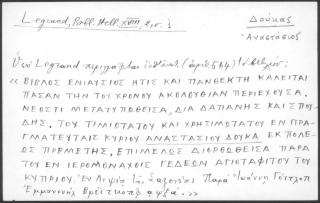 Legrand, Bibl. Hell. XVIII, 2, σ. 1
Δούκας
Αναστάσιος
Ὑπὸ Legrand περιγράφεται (ἀριθ. 564)
« ΒΙΒΛΟΣ ΕΝΙΑΥΣΙΟΣ ΗΤΙΣ ΚΑΙ ΠΑΝΘΕΚΤΗ ΚΑΛΕΙΤΑΙ
ΠΑΣΑΝ ΤΗΝ ΤΟΥ ΧΡΟΝΟΥ ΑΚΟΛΟΥΘΙΑΝ ΠΕΡΙΕΧΟΥΣΑ,
ΝΕΩΣΤΙ ΜΕΤΑΤΥΠΩΘΕΙΣΑ, ΔΙΑ ΔΑΠΑΝΗΣ ΚΑΙ ΣΠΟΥ-
ΔΗΣ, ΤΟΥ ΤΙΜΙΩΤΑΤΟΥ ΚΑΙ ΧΡΗΣΙΜΩΤΑΤΟΥ ΕΝ ΠΡΑ-
ΓΜΑΤΕΥΤΑΙΣ ΚΥΡΙΟΥ ΑΝΑΣΤΑΣΙΟΥ ΔΟΥΚΑ ΕΚ ΠΟΛΕ-
ΩΣ ΠΡΕΜΕΤΗΣ, ΕΠΙΜΕΛΩΣ ΔΙΟΡΘΩΘΕΙΣΑ ΠΑΡΑ
ΤΟΥ ΕΝ ΙΕΡΟΜΟΝΑΧΟΙΣ ΓΕΔΕΩΝ ΑΓΙΟΤΑΦΙΤΟΥ ΤΟΥ
ΚΥΠΡΙΟΥ. Ἐν Λειψίᾳ τῆς Σαξονίας Παρὰ Ἰωάννῃ Γόττλοπ
Ἐμμανουὴλ Βρέϊτκοπφ αψξα΄. »